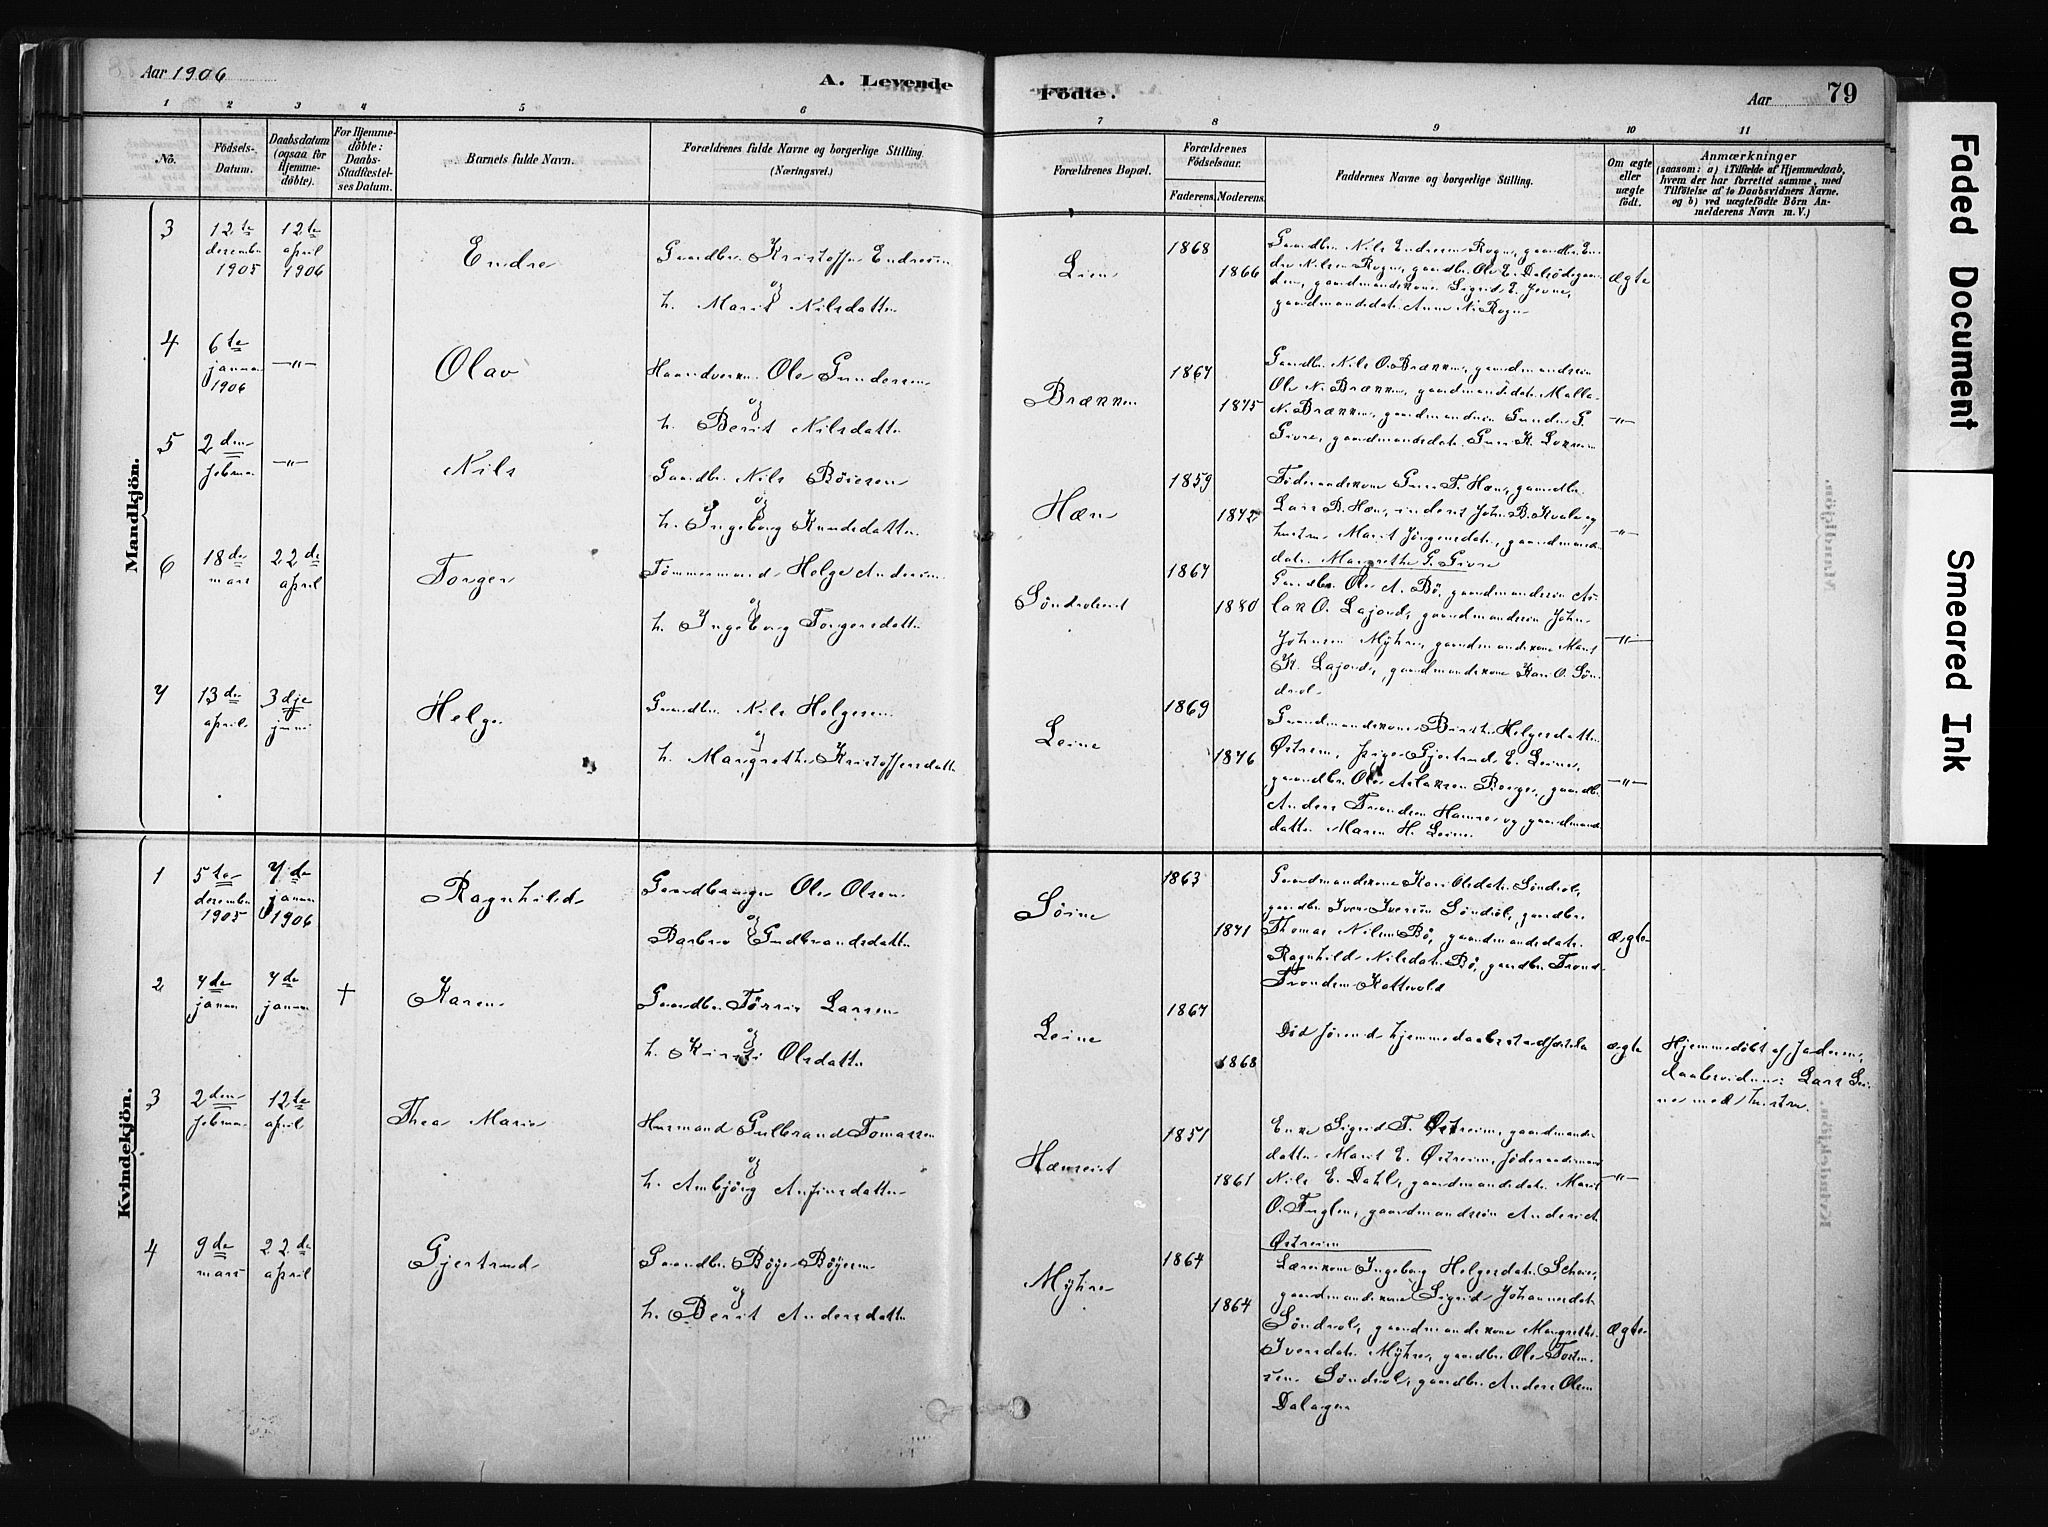 Aar 1906
A. Levende
Fødte.
Aar
79
1 2 3 4 5 6 7 8 9 10 11
No.
Fødsels-
Datum.
Daabsdatum
(ogsaa for
Hjemme-
døbte).
For Hjemme-
døbte:
Daabs-
Stadfæstel-
ses Datum.
Barnets fulde Navn.
Forældrenes fulde Navne og borgerlige Stilling
(Næringsvei.)
Forældrenes Bopæl.
Forældrenes
Fødselsaar.
Faderens. Moderens.
Faddernes Navne og borgerlige Stilling.
Om ægte
eller
uægte
født.
Anmærkninger
(saasom: a) i Tilfælde af Hjemmedaab,
hvem der har forrettet samme, med
Tilføielse af to Daabsvidners Navne,
og b) ved uægtefødte Börn An-
melderens Navn m. V.)
Mandkjön.
3
12te
desember
1905
12te
april
1906
Endre
Gaardbr. Kristoffer Endresen
og
h. Marit Nilsdatter
Lien
1868
1866
Gaardbr. Nils Endresen Rogn, gaardbr. En-
dre Nilsen Rogn, gaardbr. Ole E. Dalsødegaar-
den, gaardmandskone Sigrid E. Jevne,
gaardmandsdatr. Anne N. Rogn
ægte
4
6te
januar
1906
—"—
Olav
Haandverksm. Ole Gundersen
og
h. Berit Nilsdatter
Brækken
1867
1875
Gaardbr. Nils O. Brækken, gaardmandssøn
Ole N. Brækken, gaardmandsdatr. Malla
N. Brækken, gaardmandssøn Gunder G.
Givre, gaardmandsdatr. Guri K.
—"—
5
2den
februar
—"—
Nils
Gaardbr. Nils Bøiesen
og
h. Ingeborg Knudsdatter
Hæn
1859
1872
Føderaadskone Guri T. Hæn, gaardbr.
Lars B. Hæn, inderst John B. Kvale og
hustru Marit Jørgensdatr., gaardmands-
datr. Margrethe G. Givre
—"—
6
18de
mars
22de
april
Torger
Tømmermand Helge Andersen
og
h. Ingeborg Torgersdatter
Søndroleiet
1867
1880
Gaardbr. Ole A. Bø, gaardmandssøn As-
lak O. Lajord, gaardmandssøn John
Johnsen Myhre, gaardmandskone Marit
K. Lajord, gaardmandskone Kari O. Søn-
drol
—"—
7
13de
april
3dje
juni
Helge
Gaardbr. Nils Helgesen
og
h. Margrethe Kristoffersdatter
Leine
1869
1876
Gaardmandskone Birit Helgesdatter
Østrem, pige Gjertrud E. Leine,
gaardbr. Ole Aslaksen Berge, gaardbr.
Anders Trondsen Hamre og gaardmands-
datter Maren H. Leine.
—"—
Kvindekjön.
1
5te
desember
1905
7de
januar
1906
Ragnhild
Gaardbruger Ole Olsen
og
Barbro Gudbrandsdatter
Søine
1863
1871
Gaardmandskone Kari Olsdatr. Søndrol,
gaardbr. Iver Iversen Søndrol, gaardbr.
Thomas Nilsen Bø, gaardmandsdatr.
Ragnhild Nilsdatr. Bø, gaardbr. Trond
Trondsen Kattevold
ægte
2
7de
januar
7de
januar
†
Karen
Gaardbr. Tørris Larsen
og
h. Kirsti Olsdatter
Leine
1867
1868
Død førend hjemmedaabsstadfæstelse
ægte
Hjemmedøbt af faderen,
daabsvidner: Lars Lei-
ne med hustru.
3
2den
februar
12te
april
Thea Marie
Husmand Gulbrand Tomassen
og
h. Ambjørg Anfinsdatter
Hænseiet
1851
1861
Enke Sigrid T. Østreim, gaardmands-
datter Marit E. Østreim, føderaadsmand
Nils E. Dahl, gaardmandsdatr. Marit
O. Fuglen, gaardmandssøn Anders A.
Østreim
—"—
4
9de
mars
22de
april
Gjertrud
Gaardbr. Bøye Bøyesen
og
h. Berit Andersdatter
Myhre
1864
1864
Lærerkone Ingeborg Helgesdatr. Scheie,
gaardmandskone Sigrid Johannesdatr.
Søndrol, gaardmandskone Margrethe
Iversdatr. Myhre, gaardbr. Ole Torten-
sen Søndrol, gaardbr. Anders Olsen
Dalagen
ægte
Faded Document
Smeared Ink